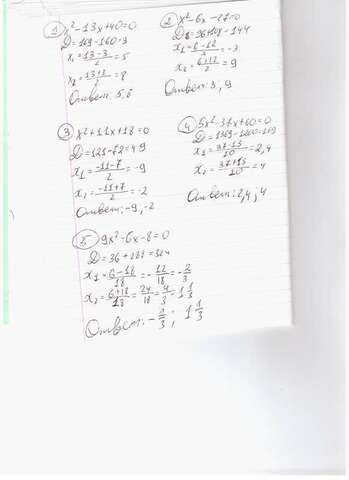 1) x² - 13x + 40 = 0
D = 169 - 160 = 3
x₁ = (13 - 3)/2 = 5
x₂ = (13 + 3)/2 = 8
Ответ: 5, 8
2) x² - 6x - 27 = 0
D = 36 + 108 = 144
x₁ = (6 - 12)/2 = -3
x₂ = (6 + 12)/2 = 9
Ответ: 3, 9
3) x² + 11x + 18 = 0
D = 121 - 72 = 49
x₁ = (-11 - 7)/2 = -9
x₂ = (-11 + 7)/2 = -2
Ответ: -9, -2
4) 5x² - 37x + 60 = 0
D = 1369 - 1200 = 169
x₁ = (37 - 13)/10 = 2,4
x₂ = (37 + 13)/10 = 4
Ответ: 2,4, 4
5) 9x² - 6x - 8 = 0
D = 36 + 288 = 324
x₁ = (6 - 18)/18 = -12/18 = -2/3
x₂ = (6 + 18)/18 = 24/18 = 4/3 = 1 1/3
Ответ: -2/3; 1 1/3